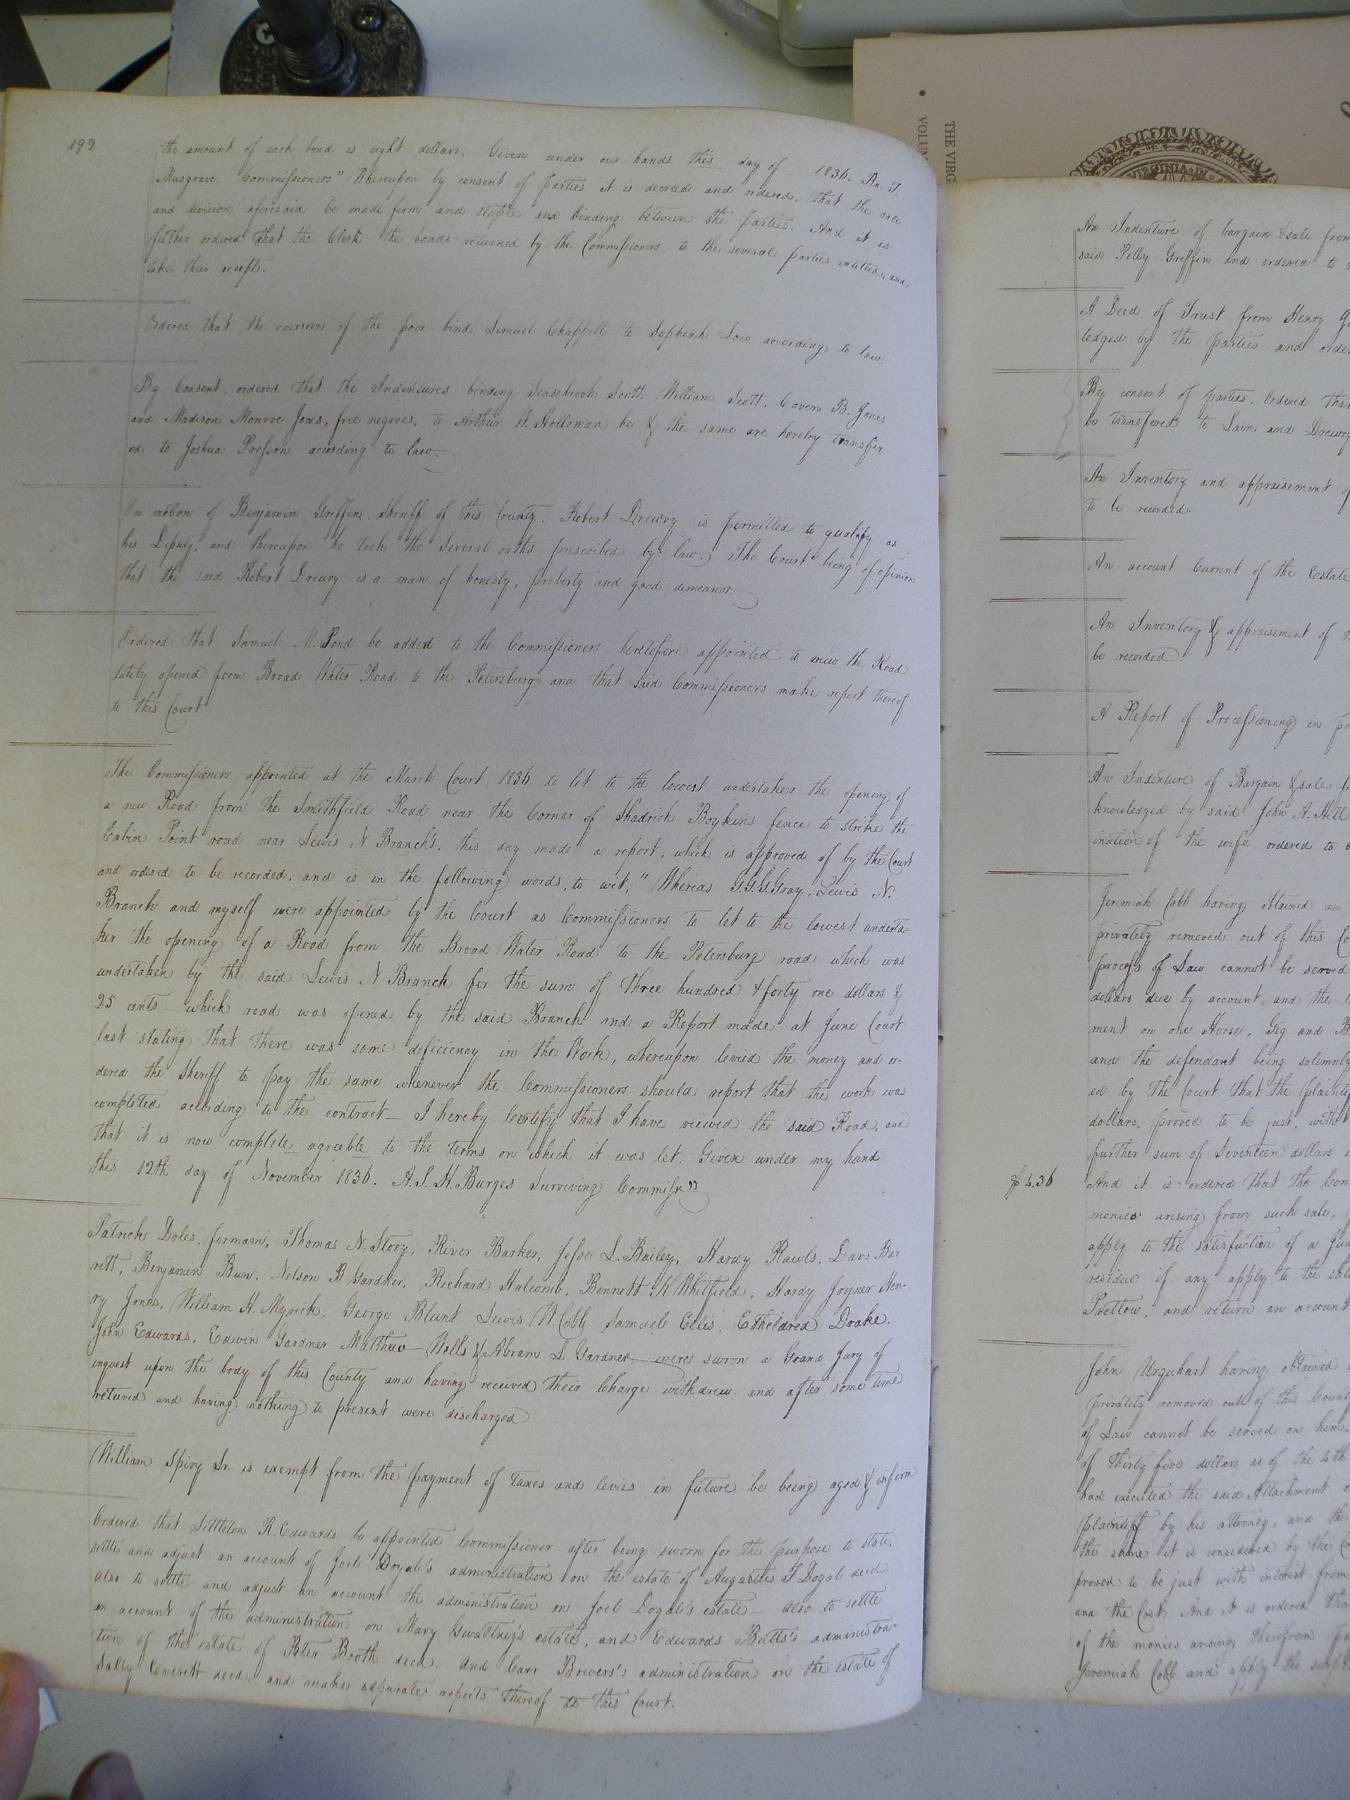 192
the amount of each bond is eight dollars. Given under our hands this day of 1836.
Musgrave. Commissioners" Thereupon by consent of parties it is decreed and ordered, that the sale
and division aforesaid be made firm and stable and binding between the parties. And it is
futher ordered that the Clerk the bonds returned by the Commissioners to the several parties entitled, and
take their receipts.
Ordered that the overseers of the poor bind Samuel Chappell to according to law.
By Consent, ordered that the Indentures binding Scott, William Scott, B. Jones
and Madison Monroe Jones, free negroes, to Arthur Holleman be & the same are hereby transfer
ed to Joshua Presson according to law.
On motion of Benjamin Griffin, Sheriff of this County, Robert Drewry is permitted to qualify as
his Deputy, and thereupon he took the several oaths prescribed by law. The Court being of opinion
that the said Robert Drewry is a man of honesty, proberty and good demeanor
Ordered that Samuel M. Pond be added to the Commissioners heretofore appointed to view the Road
lately opened from Broad Water Road to the Petersburg and that said Commissioners make report thereof
to this Court
The Commissioners appointed at the March Court 1836 to let to the lowest undertaker the opening of
a new Road from the Smithfield Road near the Corner of Shadrick Boykins fence to strike the
Cabin Point road near Lewis N Branch's, this day made a report, which is approved of by the Court
and ordered to be recorded, and is in the following words, to wit, "Whereas Gray, Lewis N.
Branch and myself were appointed by the Court as Commissioners to let to the lowest underta-
ker the opening of a Road from the Broad Water Road to the Petersburg road which was
undertaken by the said Lewis N Branch for the sum of three hundred & forty one dollars &
25 cents which road was opened by the said Branch and a Report made at June Court
last stating that there was some deficiency in the Work, whereupon levied the money and or-
dered the Sheriff to pay the same whenever the Commissioners should report that the work was
completed according to the contract— I hereby Certify that I have viewed the said Road, and
that it is now complete agreeble to the terms on which it was let. Given under my hand
this 12th day of November 1836. A. S. H. Burges Surviving Commisr"
Patrick Doles, forman, Thomas N. Story, River Barker, Jesse L. Bailey, Hardy Rawls, Bar
rett, Benjamin Bunn, Nelson B Gardner, Richard Halcomb, Bennett K Whitfield, Hardy Joyner Hen-
ry Jones, William H. Myrick, George Blunt Lewis W. Cobb Samuel Ellis, Etheldred Drake,
John Edwards, Edwin Gardner Matthew Wells & Abram L Gardner were sworn a Grand Jury of
inquest upon the body of this County and having received their Charge withdrew and after some time
retured and having nothing to present were discharged
William Spivy Sr. is exempt from the payment of taxes and levies in future he being aged & infirm
Ordered that Littleton R. Edwards be appointed Commissioner after being sworn for the purpose to state
settle and adjust an account of Joel Doyal's administration on the estate of Augustus F Doyal decd
also to settle and adjust an account the administration on Joel Doyal's estate— also to settle
an account of the administration on Mary Gwaltney's estate, and Edwards Butts's administra-
tion of the estate of Peter Booth decd. And Carr Bowers's administration on the estate of
Sally Everett decd. and make separate reports thereof to this Court.
THE VIRG
VOLUM
VIRGINIA
An Indenture of bargain & sale from
said Polly Griffin and ordered to
A Deed of Trust from Henry
ledged by the parties and order
By consent of parties, Ordered that
be transfered to Lain and Drewry
An Inventory and appraisement of
to be recorded.
An account Current of the Estate
An Inventory & appraisement of
be recorded
A Report of Processioning in
An Indenture of Bargain & sale
knowledged by said John A. Hill
ination of the wife ordered to
Jeremiah Cobb having obtained an
privately removed out of this Co
process of Law cannot be served
dollars due by account, and the
ment on one Horse, Gig and
and the defendant being solemnly
ed by the Court that the plainti
dollars, proved to be just, with
further sum of Seventeen dollars
$4.36
And it is ordered that the
monies arising from such sale,
apply to the satisfaction of a
residue if any apply to the
Pretlow, and return an account
John Urquhart having obtained
privately removed out of this County
of Law cannot be served on him,
of thirty five dollars as of the 4th
had executed the said Attachment
plaintiff by his attorney, and the
the same it is considered by the Co
proved to be just with interest from
and the Cost. And it is ordered that
of the monies arising therefrom
Jeremiah Cobb and apply the